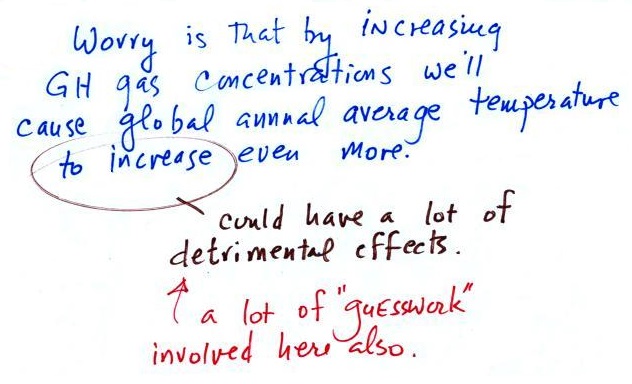 Worry is that by increasing
GH gas concentrations we'll
cause global annual average temperature
to increase even more.
could have a lot of
detrimental effects.
a lot of "guesswork"
involved here also.